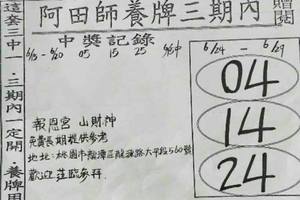 這套三中・三期內一定開・養牌用
阿田師養牌三期內
贈閱
中獎記錄
6/15 - 6/20 05 15 25 6/15中
6/24 - 6/29
04
14
24
報恩宮 山財神
免費長期提供參考
地址:桃園市龍潭區龍源路大平段560號
歡迎蒞臨參拜